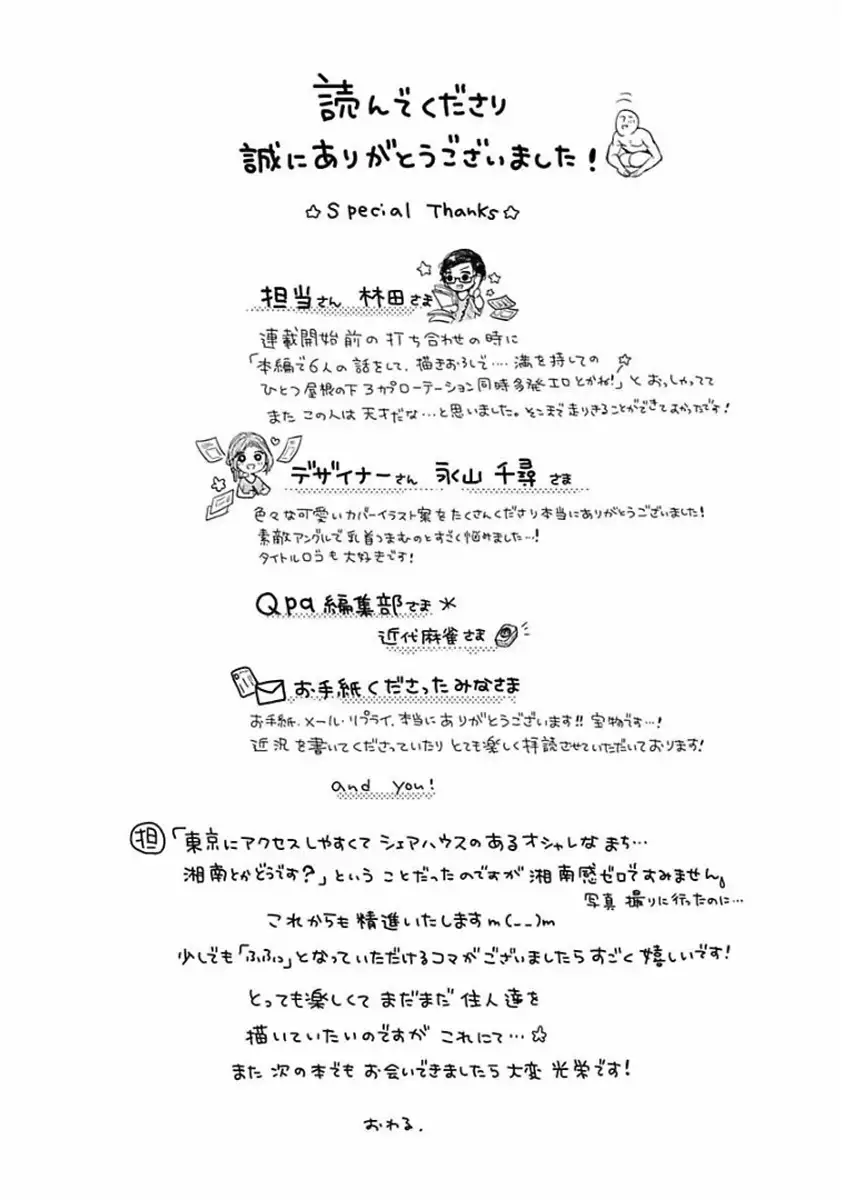 読んでくださり
誠にありがとうございました!
☆Special Thanks☆
担当さん 林田さま
連載開始前の打ち合わせの時に
「本編で6人の話をして、描きおろしで…満を持しての
ひとつ屋根の下3カプローテーション同時多発エロとかね!☆」とおっしゃってて
またこの人は天才だな…と思いました。そこまで走りきることができてよかったです!
デザイナーさん 永山千尋さま
色々な可愛いカバーイラスト案をたくさんくださり本当にありがとうございました!
素敵アングルで乳首つまむのとすごく悩めました…!
タイトルロゴも大好きです!
Qpa編集部さま*
近代麻雀さま
お手紙くださったみなさま
お手紙、メール・リプライ、本当にありがとうございます!!宝物です…!
近況を書いてくださっていたりとても楽しく拝読させていただいております!
and you!
担「東京にアクセスしやすくてシェアハウスのあるオシャレなまち…
湘南とかどうです?」ということだったのですが湘南感ゼロですみません。
写真撮りに行ったのに…
これからも精進いたしますm(__)m
少しでも「ふふっ」となっていただけるコマがございましたらすごく嬉しいです!
とっても楽しくてまだまだ住人達を
描いていたいのですがこれにて…☆
また次の本でもお会いできましたら大変光栄です!
おわる.